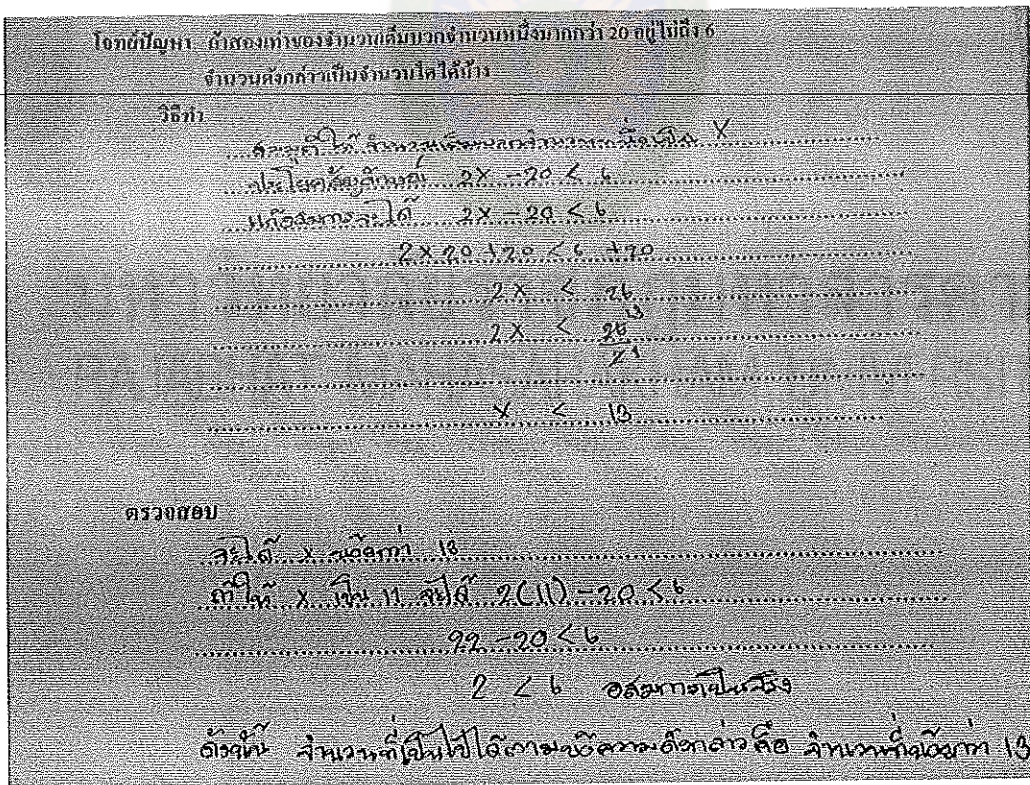 โจทย์ปัญหา ถ้าสองเท่าของจำนวนเต็มบวกจำนวนหนึ่งมากกว่า 20 อยู่ไม่ถึง 6
จำนวนดังกล่าวเป็นจำนวนใดได้บ้าง
วิธีทำ
สมมุติให้ จำนวนเต็มบวกจำนวนหนึ่งเป็น X
ประโยคสัญลักษณ์ 2X - 20 < 6
แก้อสมการจะได้ 2X - 20 < 6
2X 20 + 20 < 6 + 20
2X < 26
2X < 26 13
2 1
X < 13
ตรวจสอบ
จะได้ X น้อยกว่า 13
ถ้าให้ X เป็น 11 จะได้ 2(11) - 20 < 6
22 - 20 < 6
2 < 6 อสมการเป็นจริง
ดังนั้น จำนวนที่เป็นไปได้ตามข้อความดังกล่าว คือ จำนวนที่น้อยกว่า 13